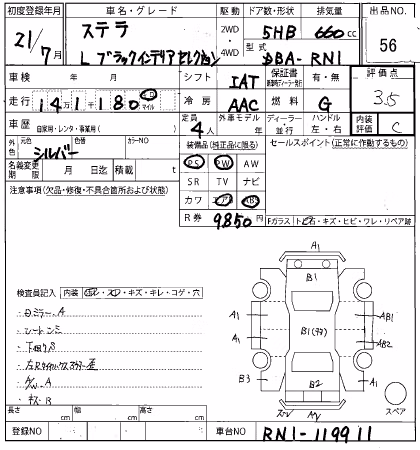 初度登録年月 車名・グレード 2WD・4WD ドア数・形状 排気量 出品NO.
21/7月 ステラ 5HB 660cc 56
L ブラックインテリアセレクション 型式 DBA-RN1
車検 年 月 シフト IAT 保証書 有・無 評価点
走行 141,180 km マイル 冷房 AAC 燃料 G 3.5
車歴 自家用・レンタ・事業用( ) 定員 4人 外車モデル 年 ディーラー・並行 ハンドル 左・右 内装評価 C
外色 元色 シルバー 色替 カラーNO 装備品(純正品に限る) セールスポイント(正常に作動するもの)
名義変更期限 月 日迄 積載 t PS PW AW
注意事項(欠品・修復・不具合箇所および状態) SR TV ナビ
カワ エアB ABS
R券 9850円
Fガラス トビ石・キズ・ヒビ・ワレ・リペア跡
検査員記入 内装 ヨゴレ・スレ・キズ・キレ・コゲ・穴
シートシミ
A1
B1
A1 AB1
A1 B1 AB2
B3 A1
B2
スペア
長さ cm 幅 cm 高さ cm
登録NO 車台NO RN1-119911